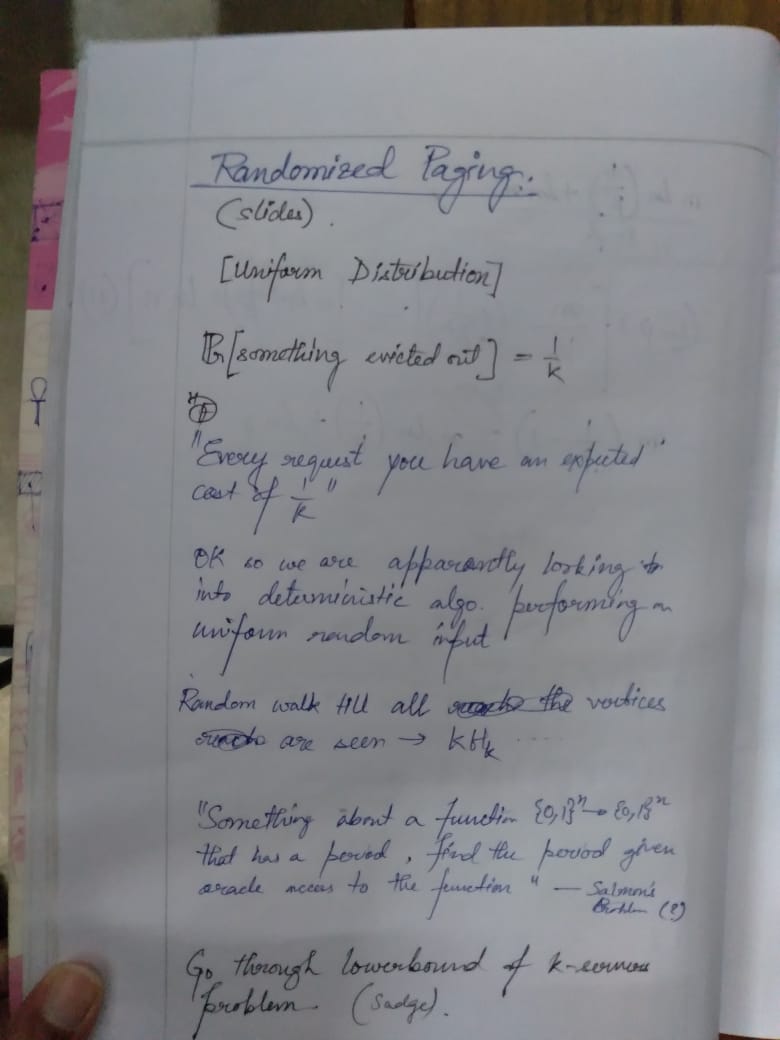 Randomized Paging:
(slides).
[Uniform Distribution]
Pr[something evicted out] = 1/k
"Every request you have an expected
cost of 1/k"
OK so we are apparantly looking
into deterministic algo. performing on
uniform random input
Random walk till all vertices
are seen → kH_k ....
"Something about a function {0,1}^n → {0,1}^n
that has a period, find the period given
oracle access to the function" — Salmon's
Problem (?)
Go through lowerbound of k-
problem. (Sadge).